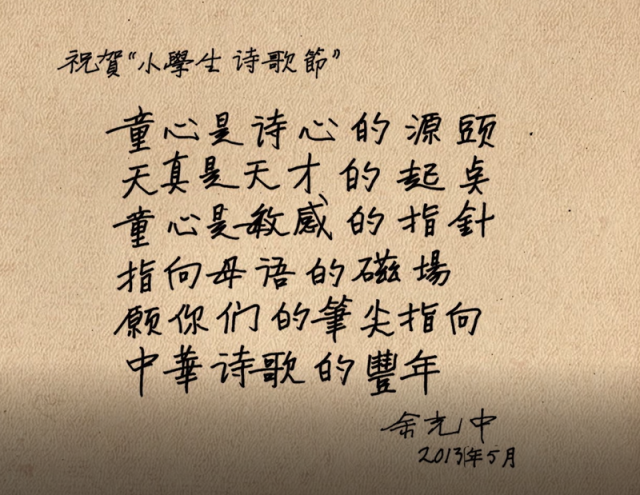 祝賀“小學生诗歌節”
童心是诗心的源頭
天真是天才的起奌
童心是敏感的指針
指向母语的磁場
願你们的筆尖指向
中華诗歌的豐年
余光中
2013年5月